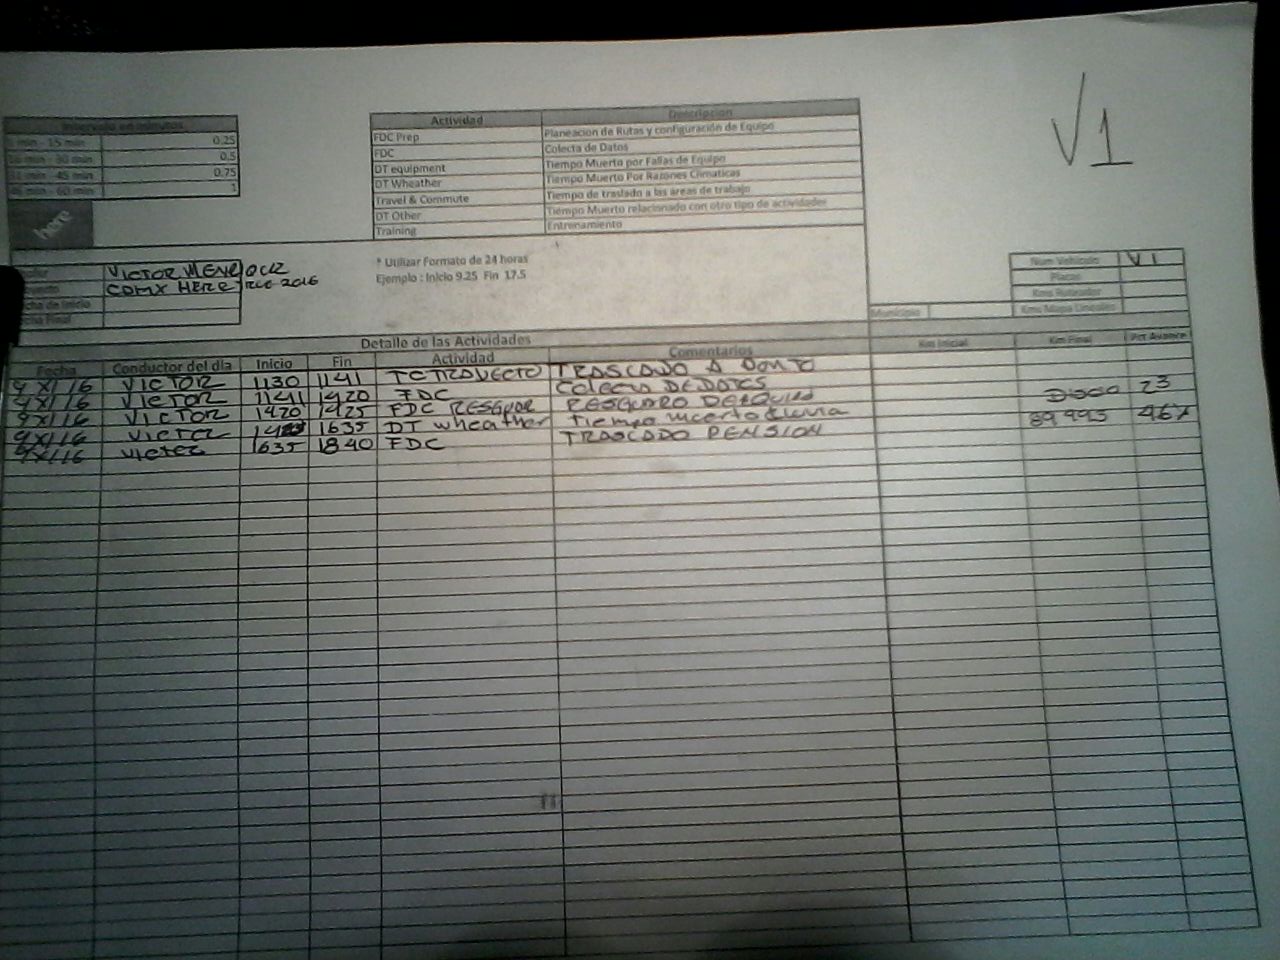 V1
Intervalo en minutos
1 min - 15 min 0.25
16 min - 30 min 0.5
31 min - 45 min 0.75
46 min - 60 min 1
here
Actividad Descripcion
FDC Prep Planeacion de Rutas y configuración de Equipo
FDC Colecta de Datos
DT equipment Tiempo Muerto por Fallas de Equipo
DT Wheather Tiempo Muerto Por Razones Climaticas
Travel & Commute Tiempo de traslado a las areas de trabajo
DT Other Tiempo Muerto relacionado con otro tipo de actividades
Training Entrenamiento
* Utilizar Formato de 24 horas
Ejemplo : Inicio 9.25 Fin 17.5
VICTOR
CDMX HERE 2016
Num Vehiculo V1
Placas
Municipio
Detalle de las Actividades
Fecha Conductor del día Inicio Fin Actividad Comentarios Km Inicial Km Final Pct Avance
4 XI/16 VICTOR 1130 1141 TRASCADO A PUNTO
4 XI/16 VICTOR 1141 1420 FDC COLECTA DE DATOS DISCO 23
4 XI/16 VICTOR 1420 1425 FDC RESGUAR
4 XI/16 VICTOR 1635 DT wheather tiempo muerto lluvia 89993 46%
4 XI/16 VICTOR 1635 1840 FDC TRASCADO PENSION